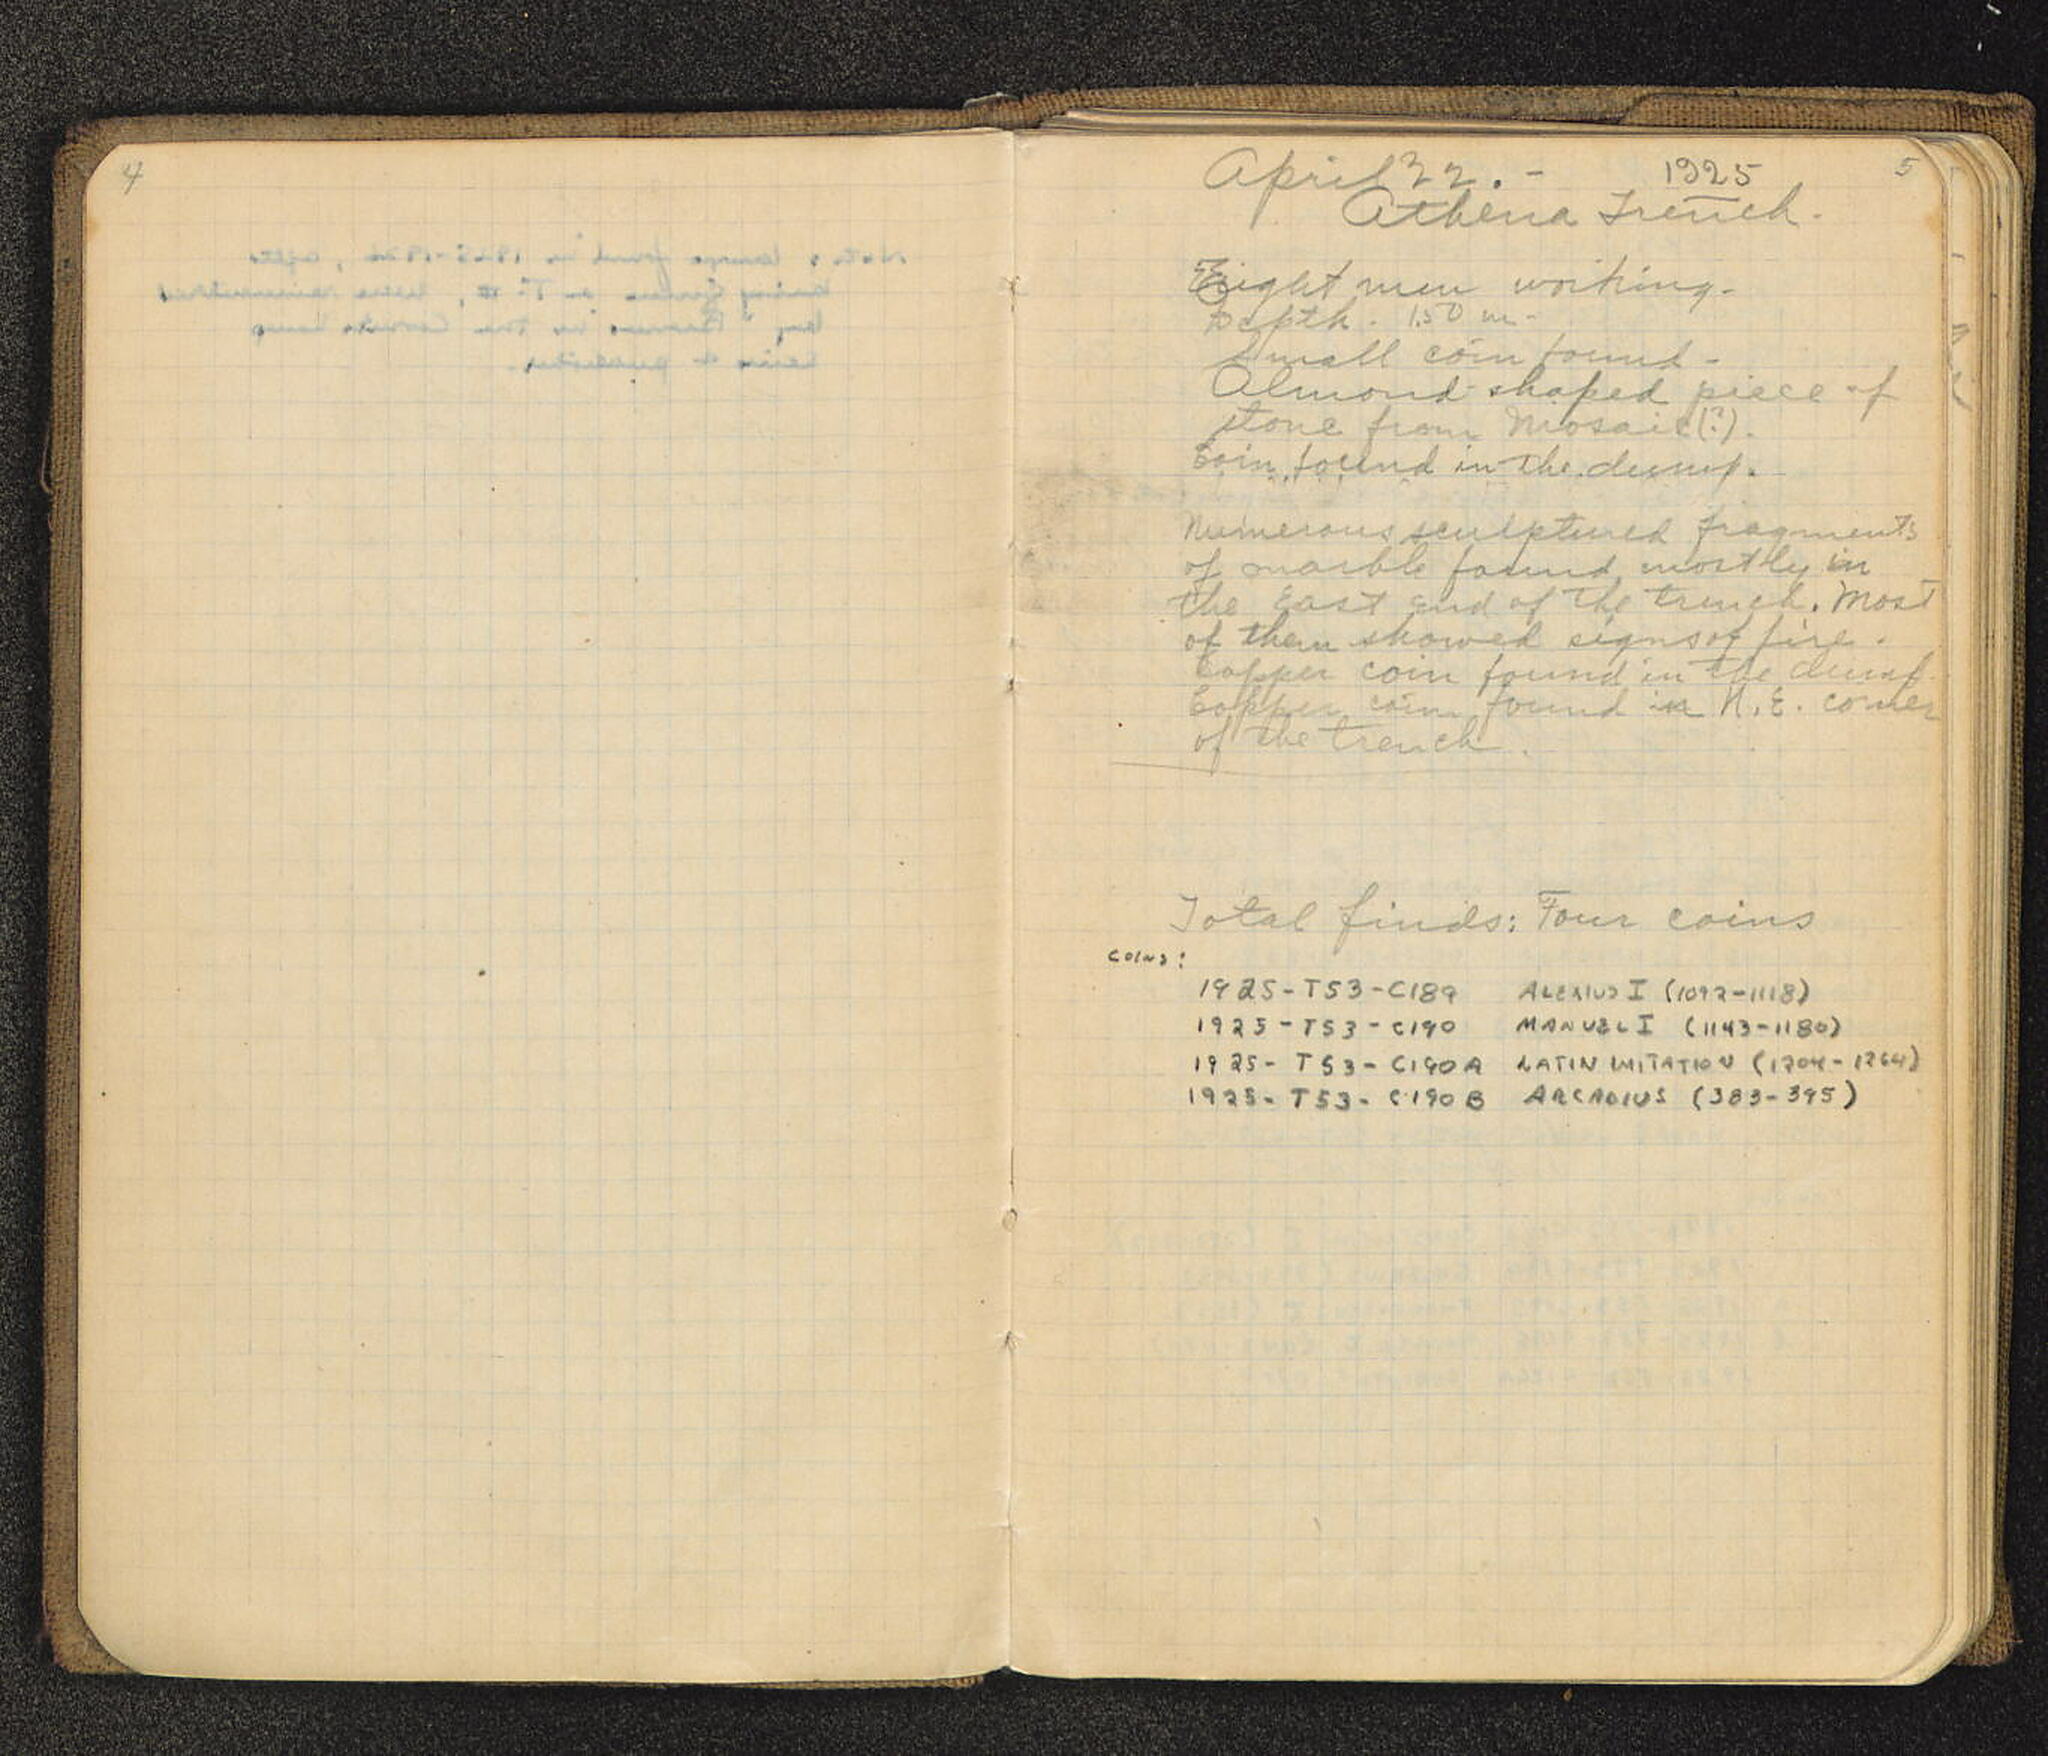 4
5
April 22. - 1925
Athena Trench.
Eight men working.
Depth. 1.50 m.
Small coin found -
Almond-shaped piece of
stone from Mosaic(?).
Coin found in the dump.
Numerous sculptured fragments
of marble found mostly in
the East end of the trench. Most
of them showed signs of fire.
Copper coin found in the dump.
Copper coin found in N.E. corner
of the trench.
Total finds: Four coins
COINS:
1925-T53-C189 ALEXIUS I (1092-1118)
1925-T53-C190 MANUEL I (1143-1180)
1925-T53-C190A LATIN IMITATION (1204-1264)
1925-T53-C190B ARCADIUS (383-395)